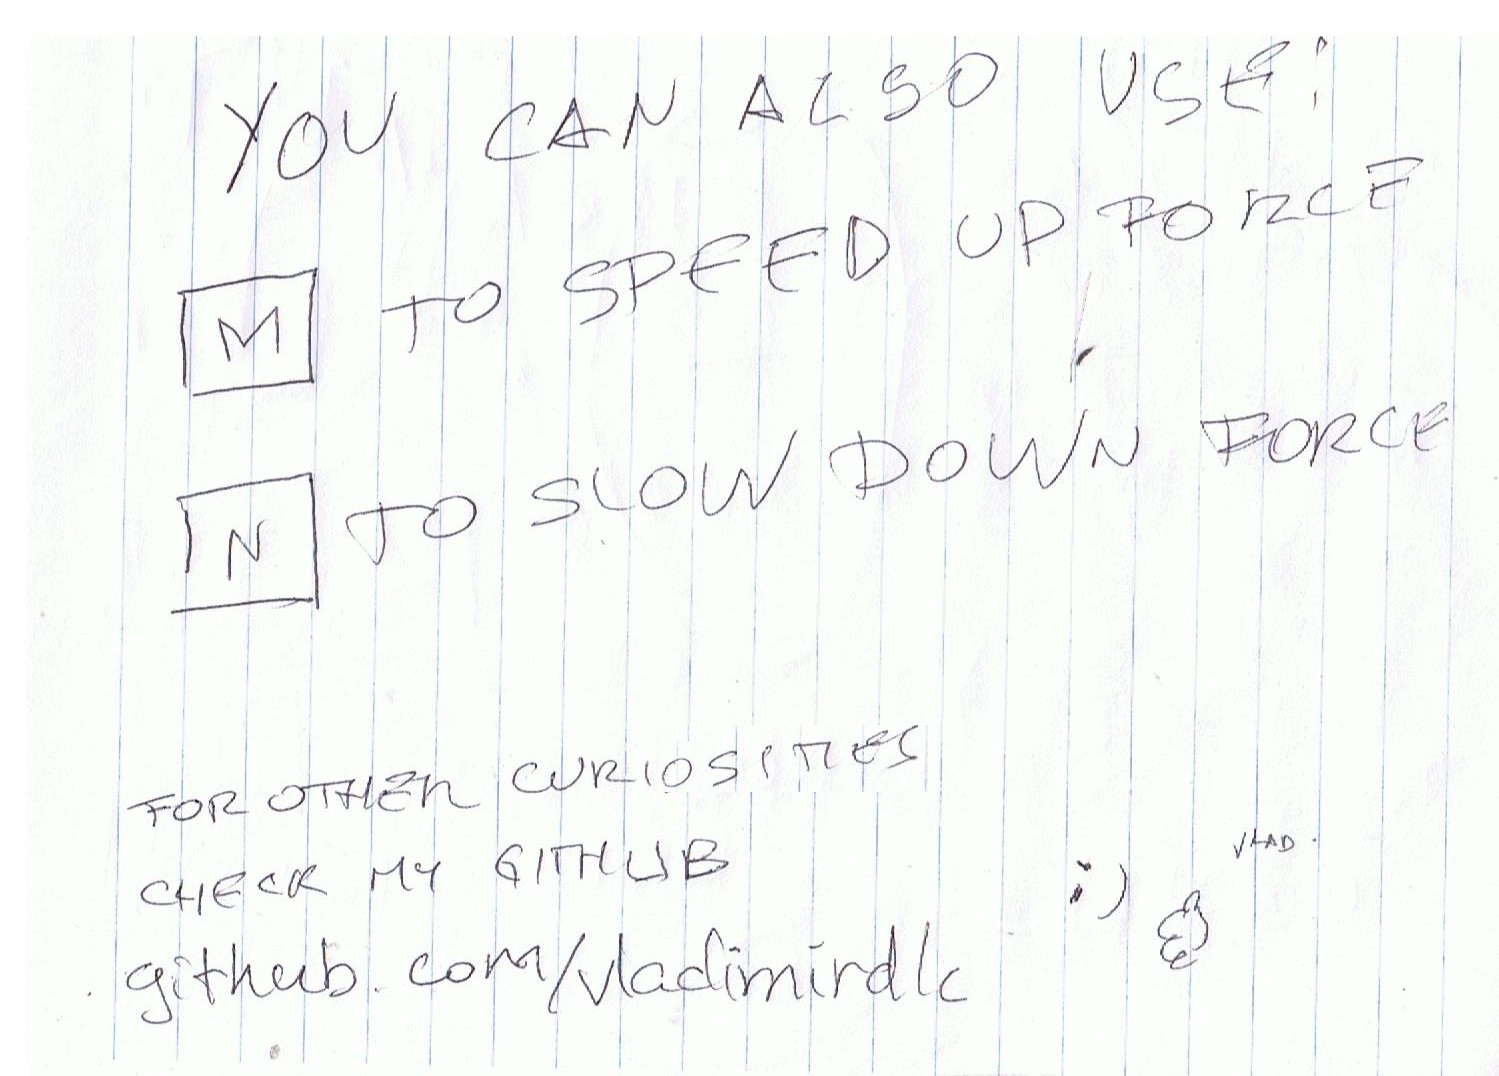 YOU CAN ALSO USE:
M TO SPEED UP FORCE
N TO SLOW DOWN FORCE
FOR OTHER CURIOSITIES
CHECK MY GITHUB
github.com/vladimirdlc
;)
VLAD.